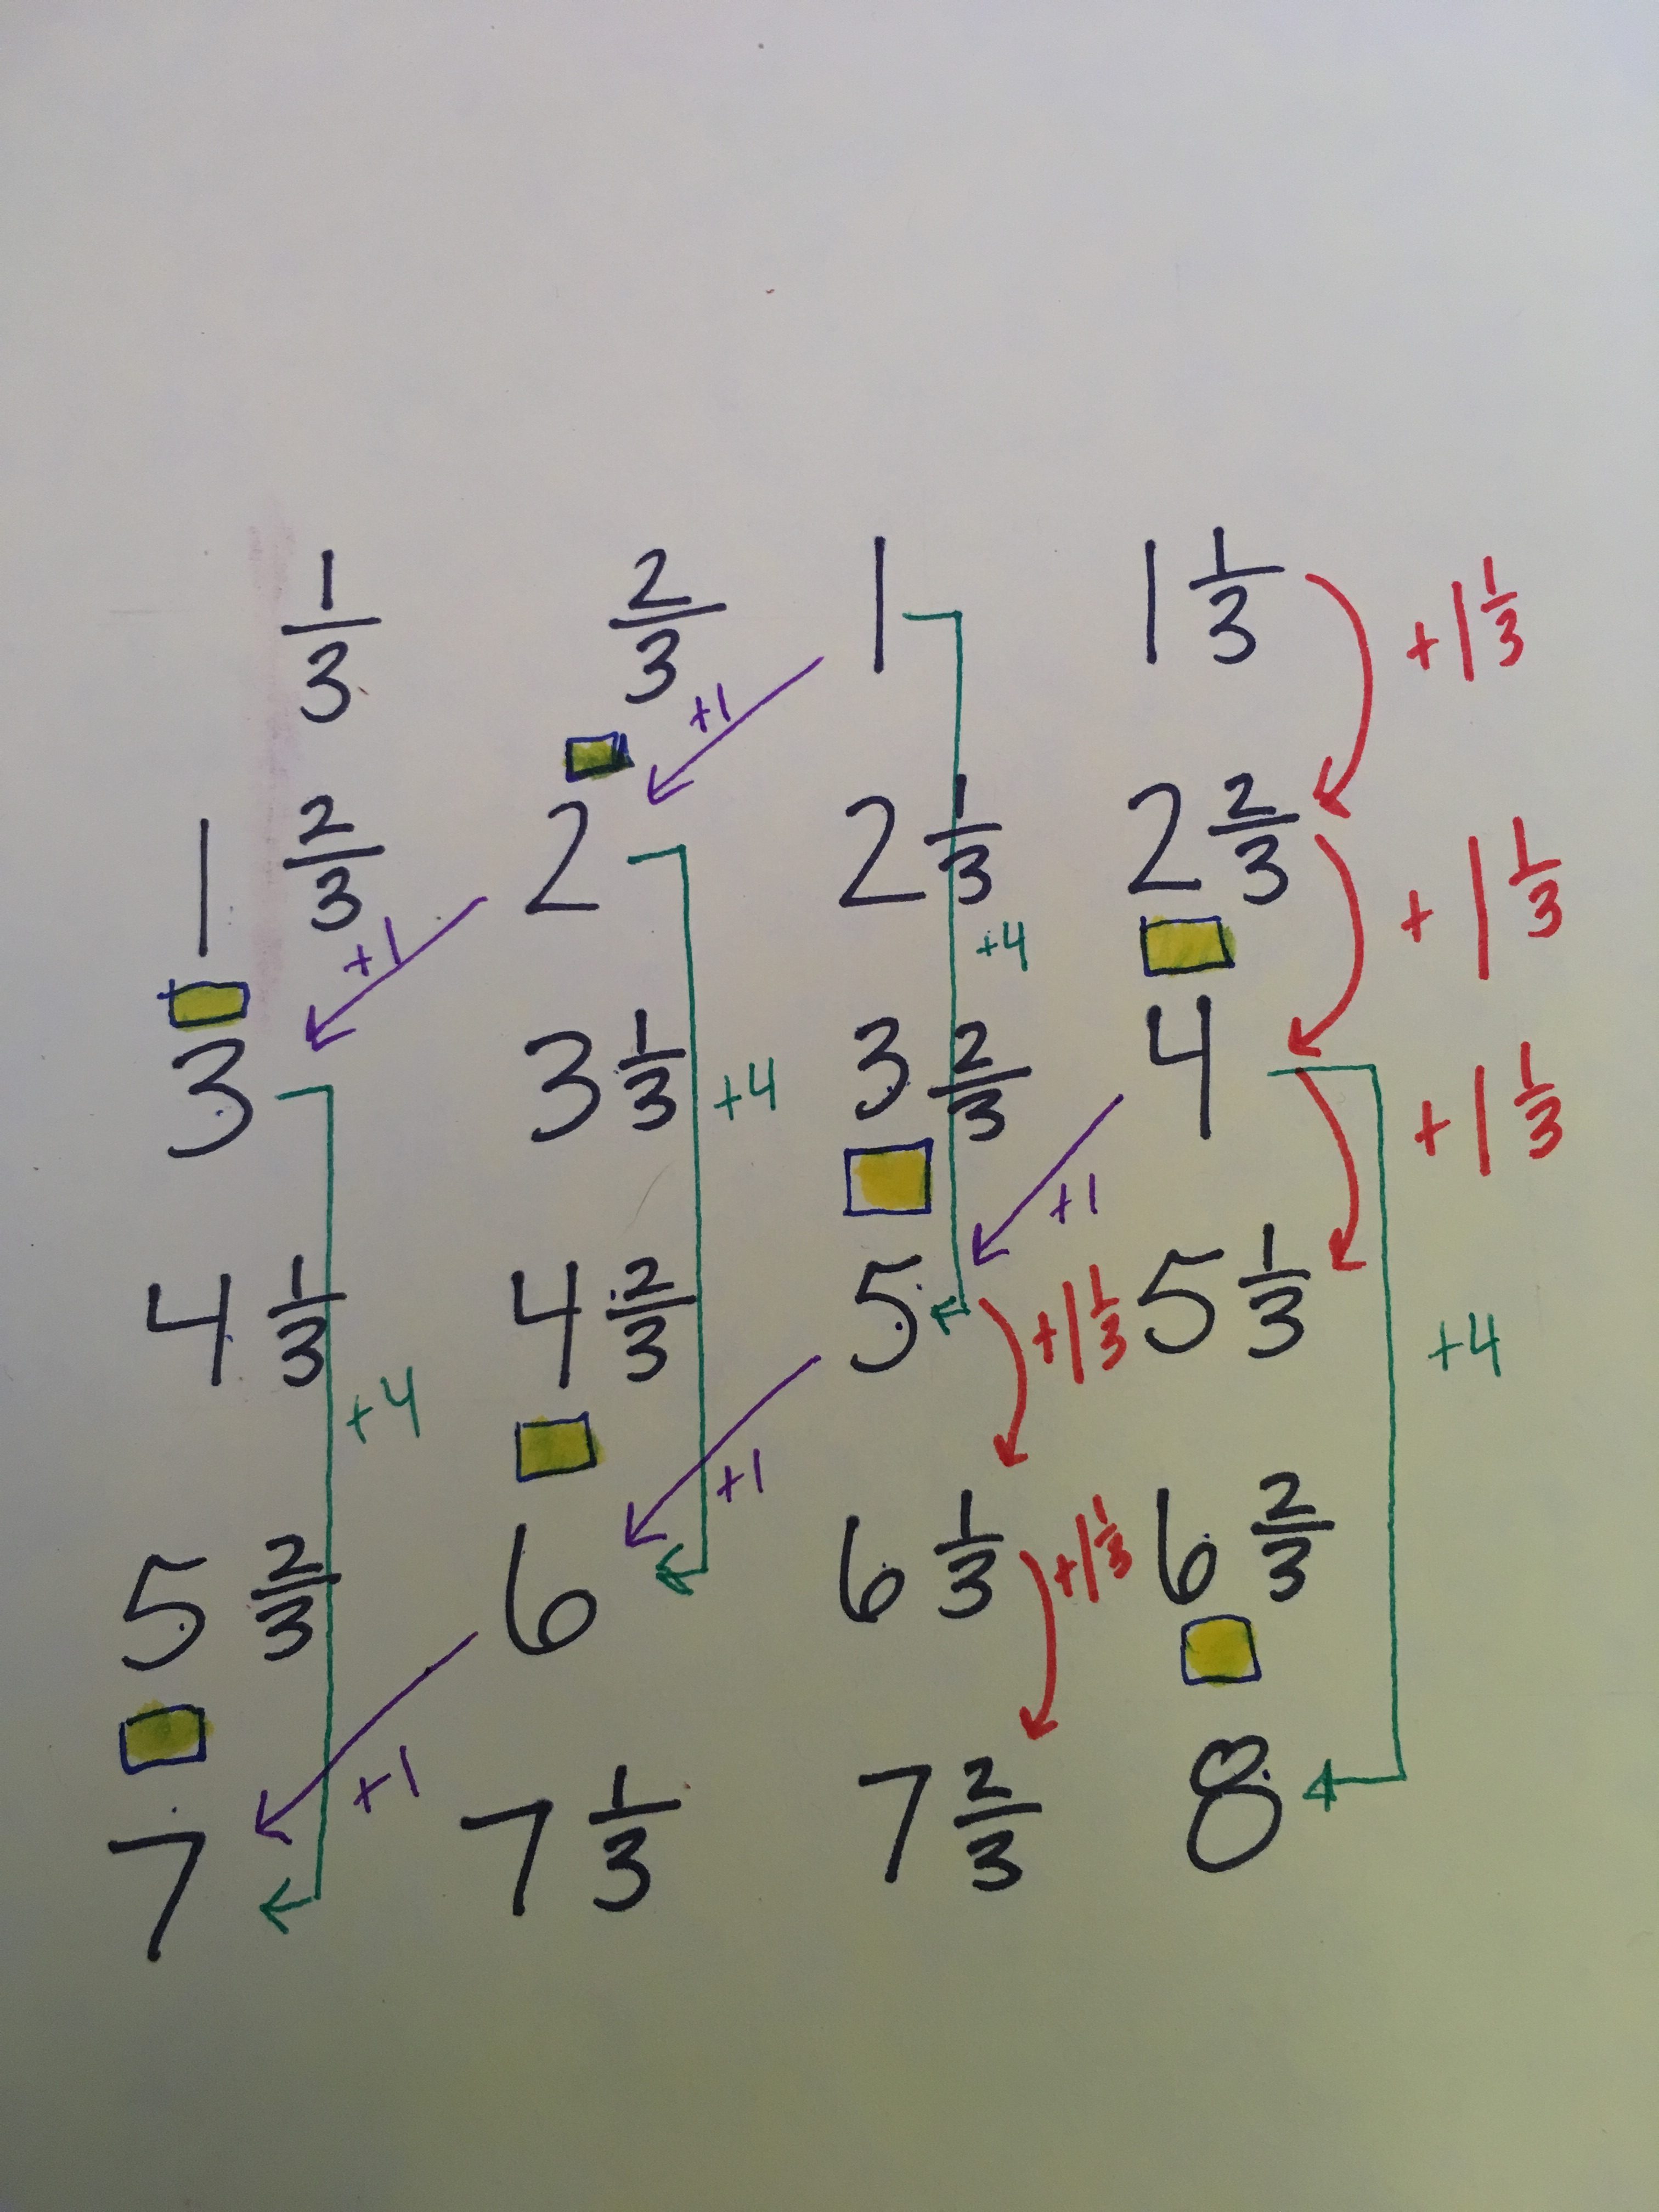 1/3 2/3 1 1 1/3 +1 1/3
+1
1 2/3 2 2 1/3 2 2/3 +1 1/3
+1 +4
3 3 1/3 +4 3 2/3 4 +1 1/3
+1
4 1/3 4 2/3 5 +1 1/3 5 1/3 +4
+4
+1
5 2/3 6 6 1/3 +1 1/3 6 2/3
+1
7 7 1/3 7 2/3 8